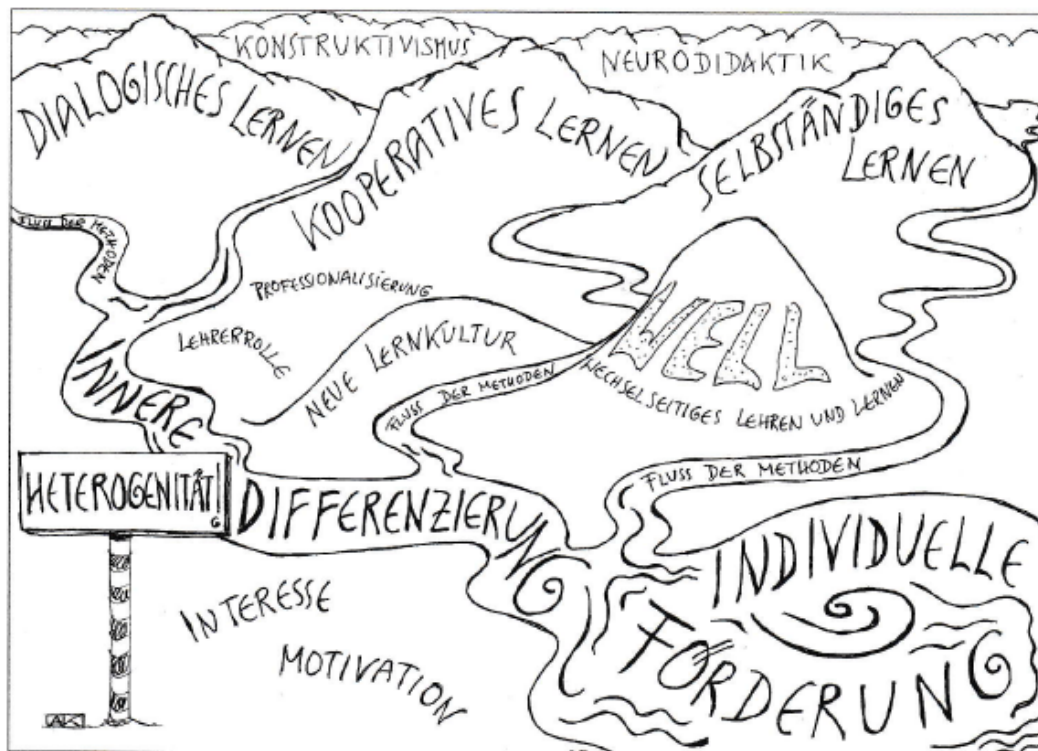 KONSTRUKTIVISMUS
NEURODIDAKTIK
DIALOGISCHES LERNEN
KOOPERATIVES LERNEN
SELBSTÄNDIGES
LERNEN
FLUSS DER METHODEN
PROFESSIONALISIERUNG
LEHRERROLLE
NEUE LERNKULTUR
WELL
WECHSELSEITIGES LEHREN UND LERNEN
FLUSS DER METHODEN
FLUSS DER METHODEN
INNERE
DIFFERENZIERUNG
HETEROGENITÄT
G
INDIVIDUELLE
FÖRDERUNG
INTERESSE
MOTIVATION
AK